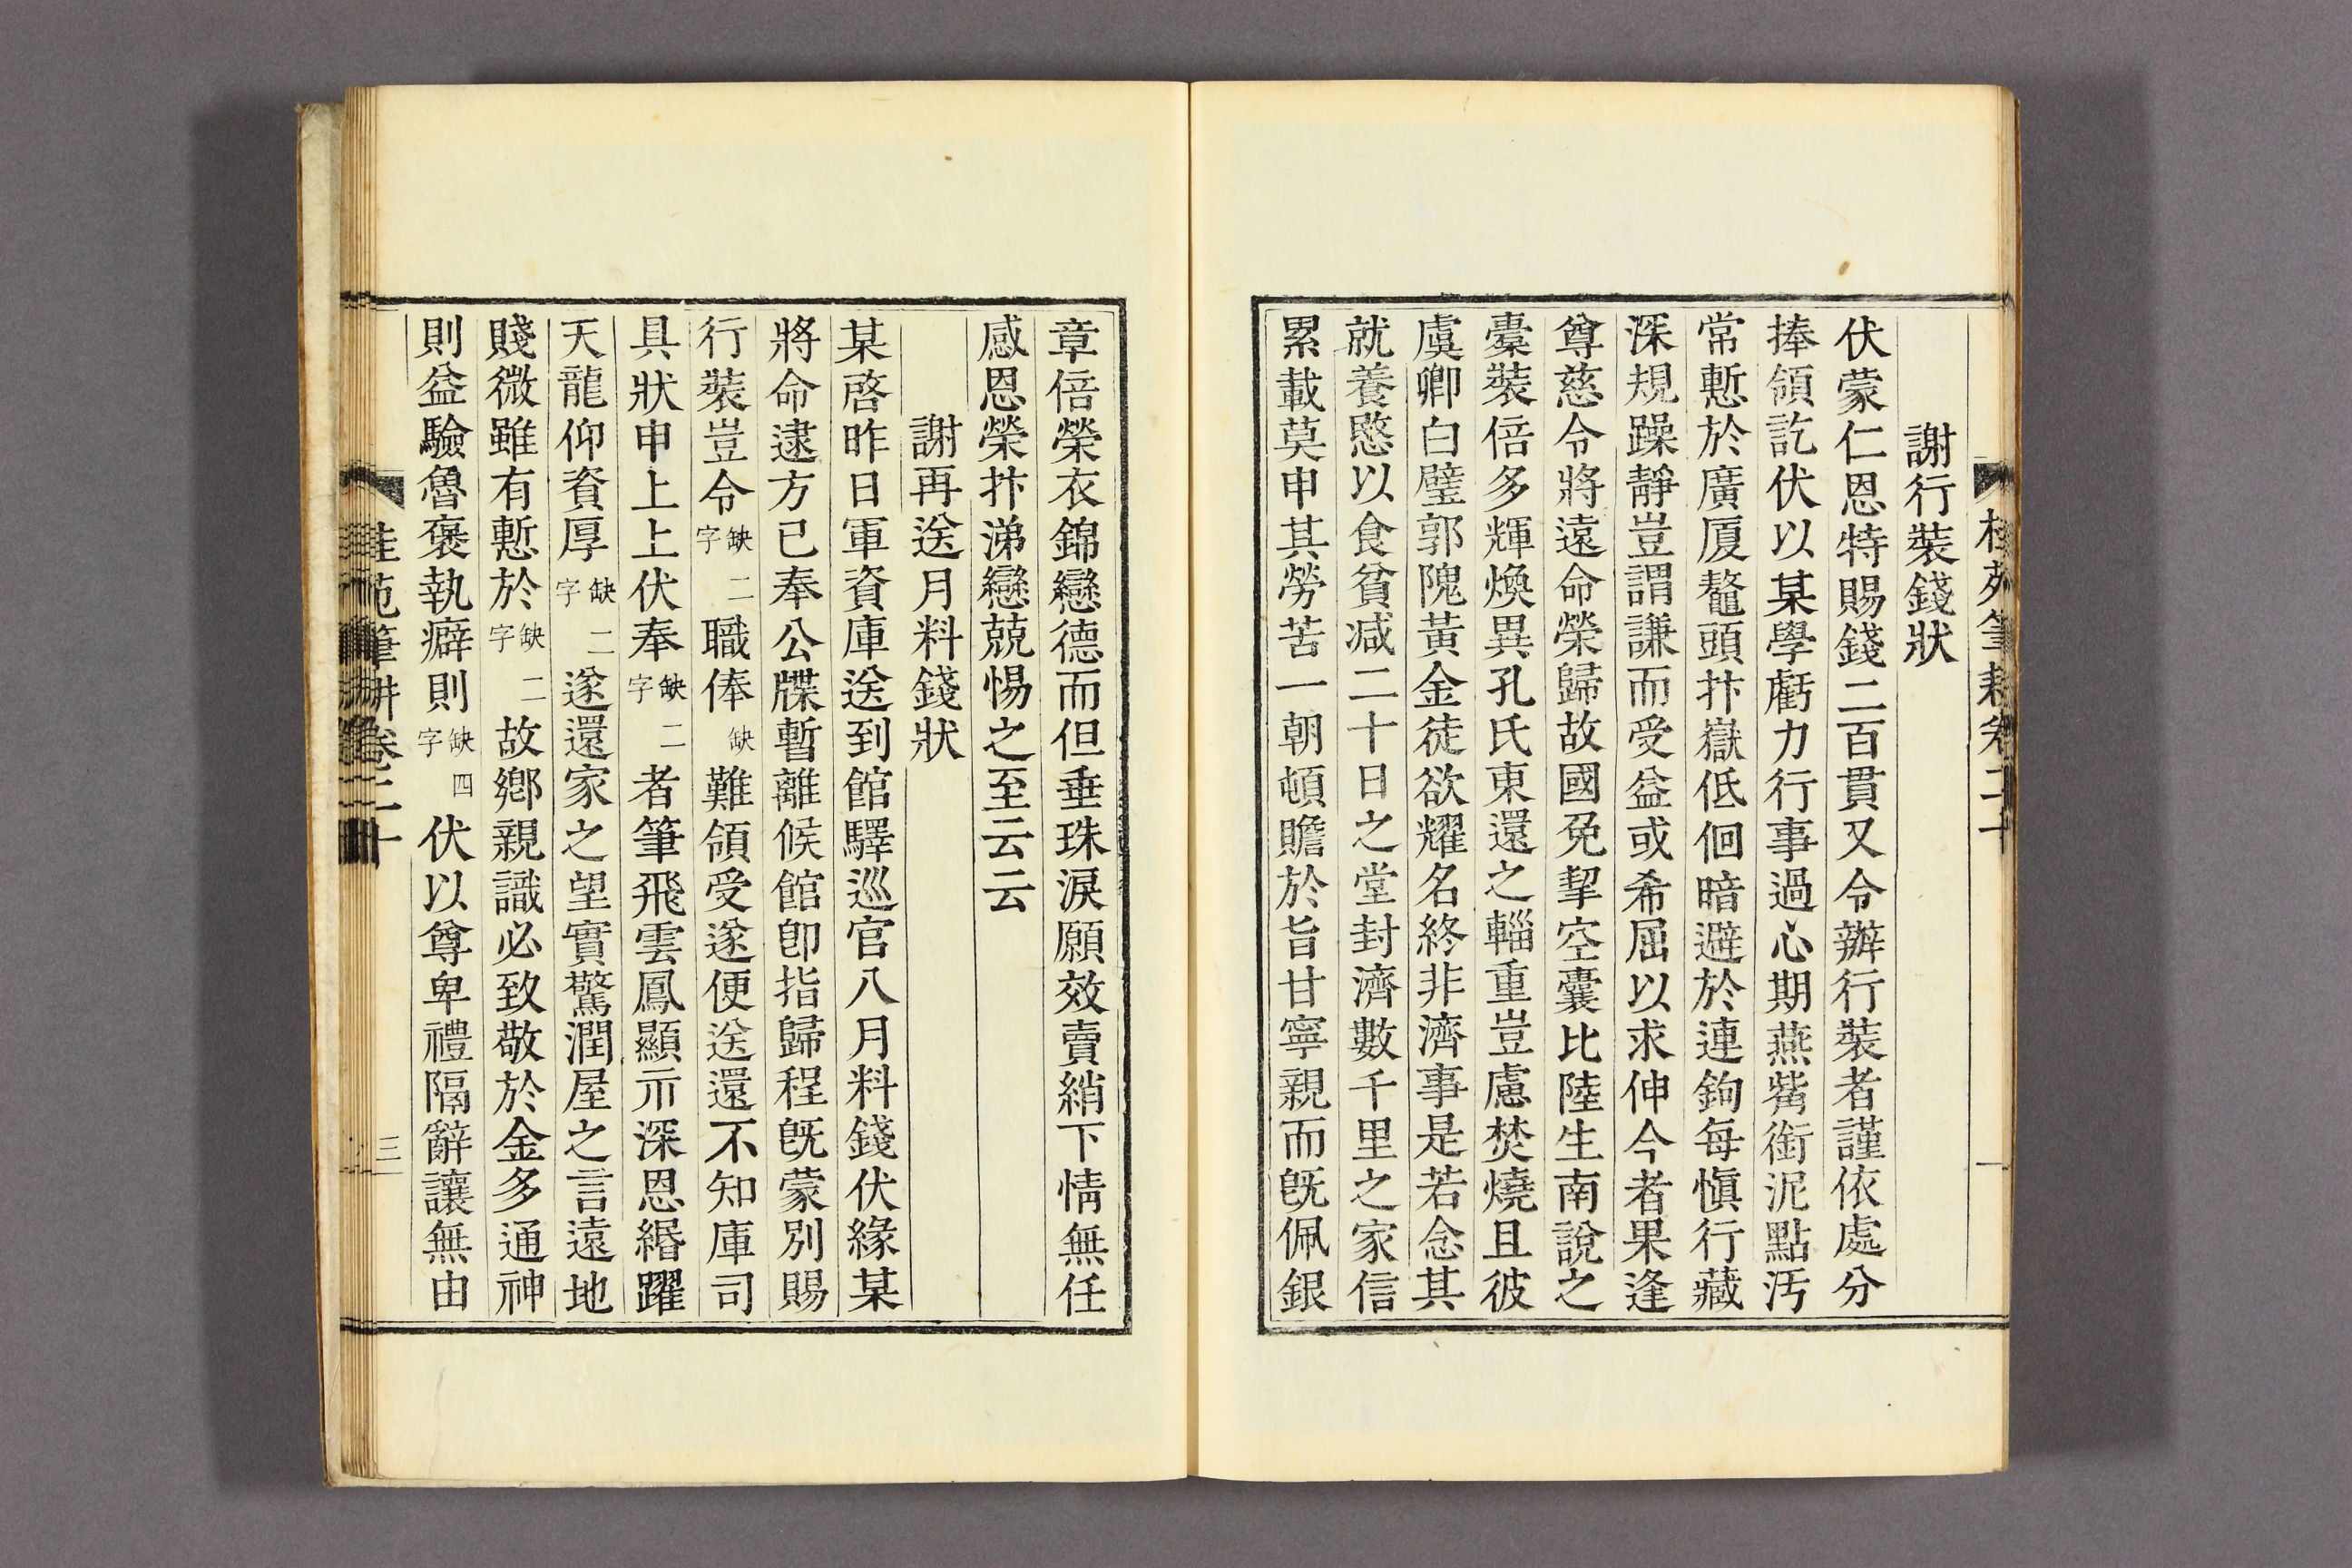 桂苑筆耕卷二十
一
謝行裝錢狀
伏蒙仁恩特賜錢二百貫又令辦行裝者謹依處分
捧領訖伏以某學虧力行事過心期燕觜銜泥點汚
常慙於廣厦鼇頭抃嶽低佪暗避於連鉤每愼行藏
深規躁靜豈謂謙而受益或希屈以求伸今者果逢
尊慈令將遠命榮歸故國免挈空囊比陸生南說之
橐裝倍多輝煥異孔氏東還之輜重豈慮焚燒且彼
虞卿白璧郭隗黃金徒欲耀名終非濟事是若念其
就養愍以食貧减二十日之堂封濟數千里之家信
累載莫申其勞苦一朝頓贍於旨甘寧親而旣佩銀
章倍榮衣錦戀德而但垂珠淚願效賣綃下情無任
感恩榮抃涕戀兢惕之至云云
謝再送月料錢狀
某啓昨日軍資庫送到館驛巡官八月料錢伏緣某
將命遠方已奉公牒暫離候館卽指歸程旣蒙別賜
行裝豈令缺二字職俸缺難領受遂便送還不知庫司
具狀申上上伏奉缺二字者筆飛雲鳳顯示深恩緡躍
天龍仰資厚缺二字遂還家之望實驚潤屋之言遠地
賤微雖有慙於缺二字故鄕親識必致敬於金多通神
則益驗魯褒執癖則缺四字伏以尊卑禮隔辭讓無由
桂苑筆耕卷二十
三